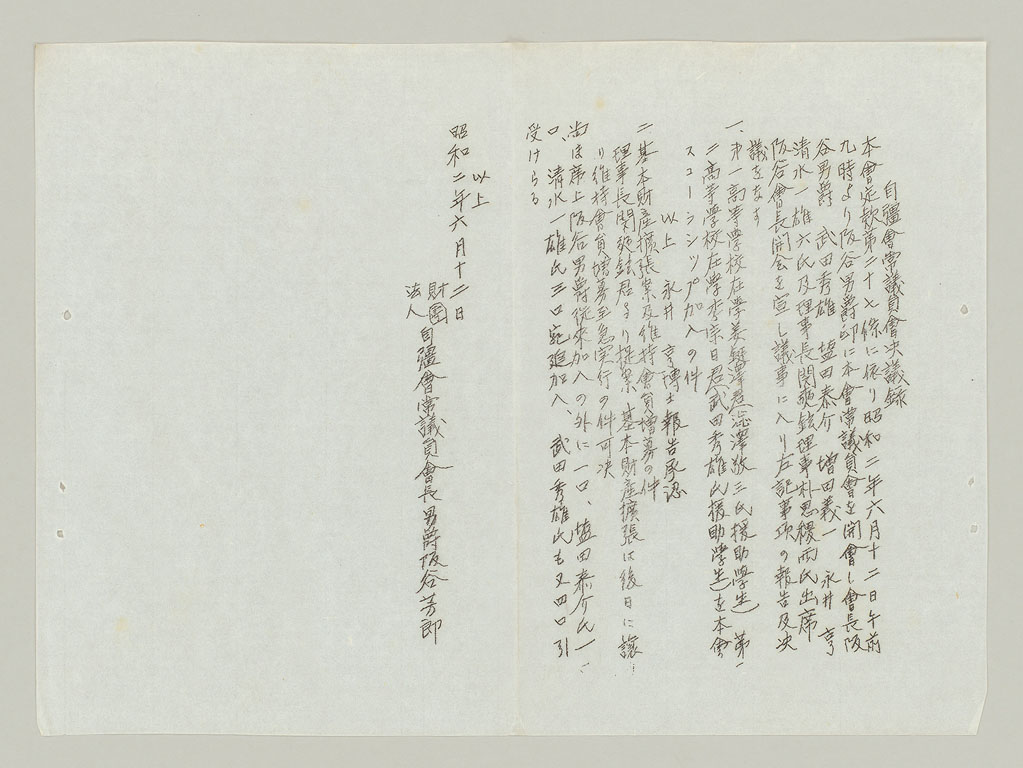 自彊會常議員會決議録
本會定款第二十七條に依り昭和二年六月十二日午前
九時より阪谷男爵邸に本會常議員會を開會し會長阪
谷男爵 武田秀雄 塩田泰介 増田義一 永井 亨
清水一雄六氏及理事長関 理事朴思稷両氏出席
阪谷會長開会を宣し議事に入り左記事項の報告及决
議をなす
一、第一高等学校在学姜 君(澁澤敬三氏援助學生)第
二高等学校在学李宗日君(武田秀雄氏援助學生)を本會
スコーラシップ加入の件
以上 永井 亨博士報告承認
二 基本財産擴張案及維持會員増募の件
理事長関 鉉君より提案 基本財産擴張は後日に譲
り維持會員増募至急実行の件可决
尚ほ席上阪谷男爵従来加入の外に一口、塩田泰介氏一
口、清水一雄氏三口宛追加入、武田秀雄氏も又四口引
受けらる
以上
昭和二年六月十二日
財團
法人 自彊會常議員會長男爵阪谷芳郎